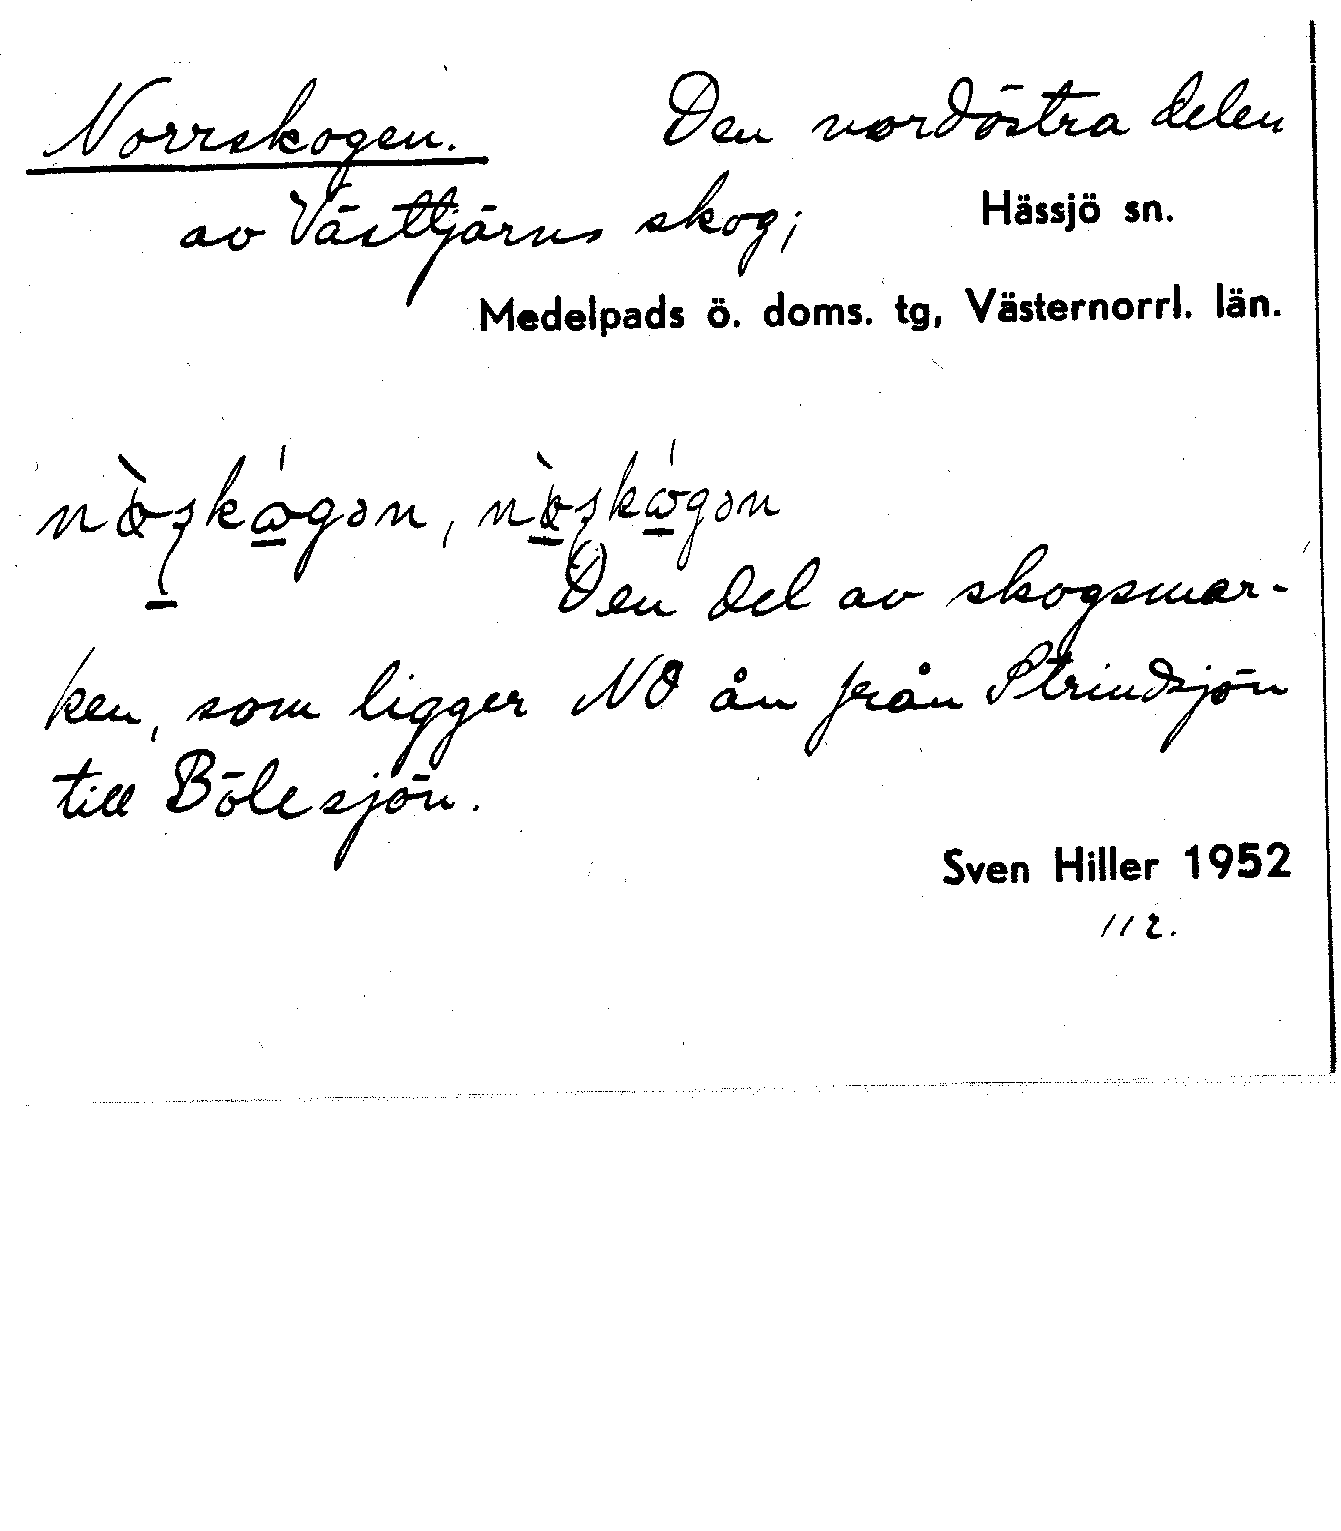 Norrskogen. Den nordöstra delen
av Västtjärns skog; Hässjö sn.
Medelpads ö. doms. tg, Västernorrl. län.
Den del av skogsmar-
ken, som ligger NO ån från Strindsjön
till Bölesjön.
Sven Hiller 1952
112.